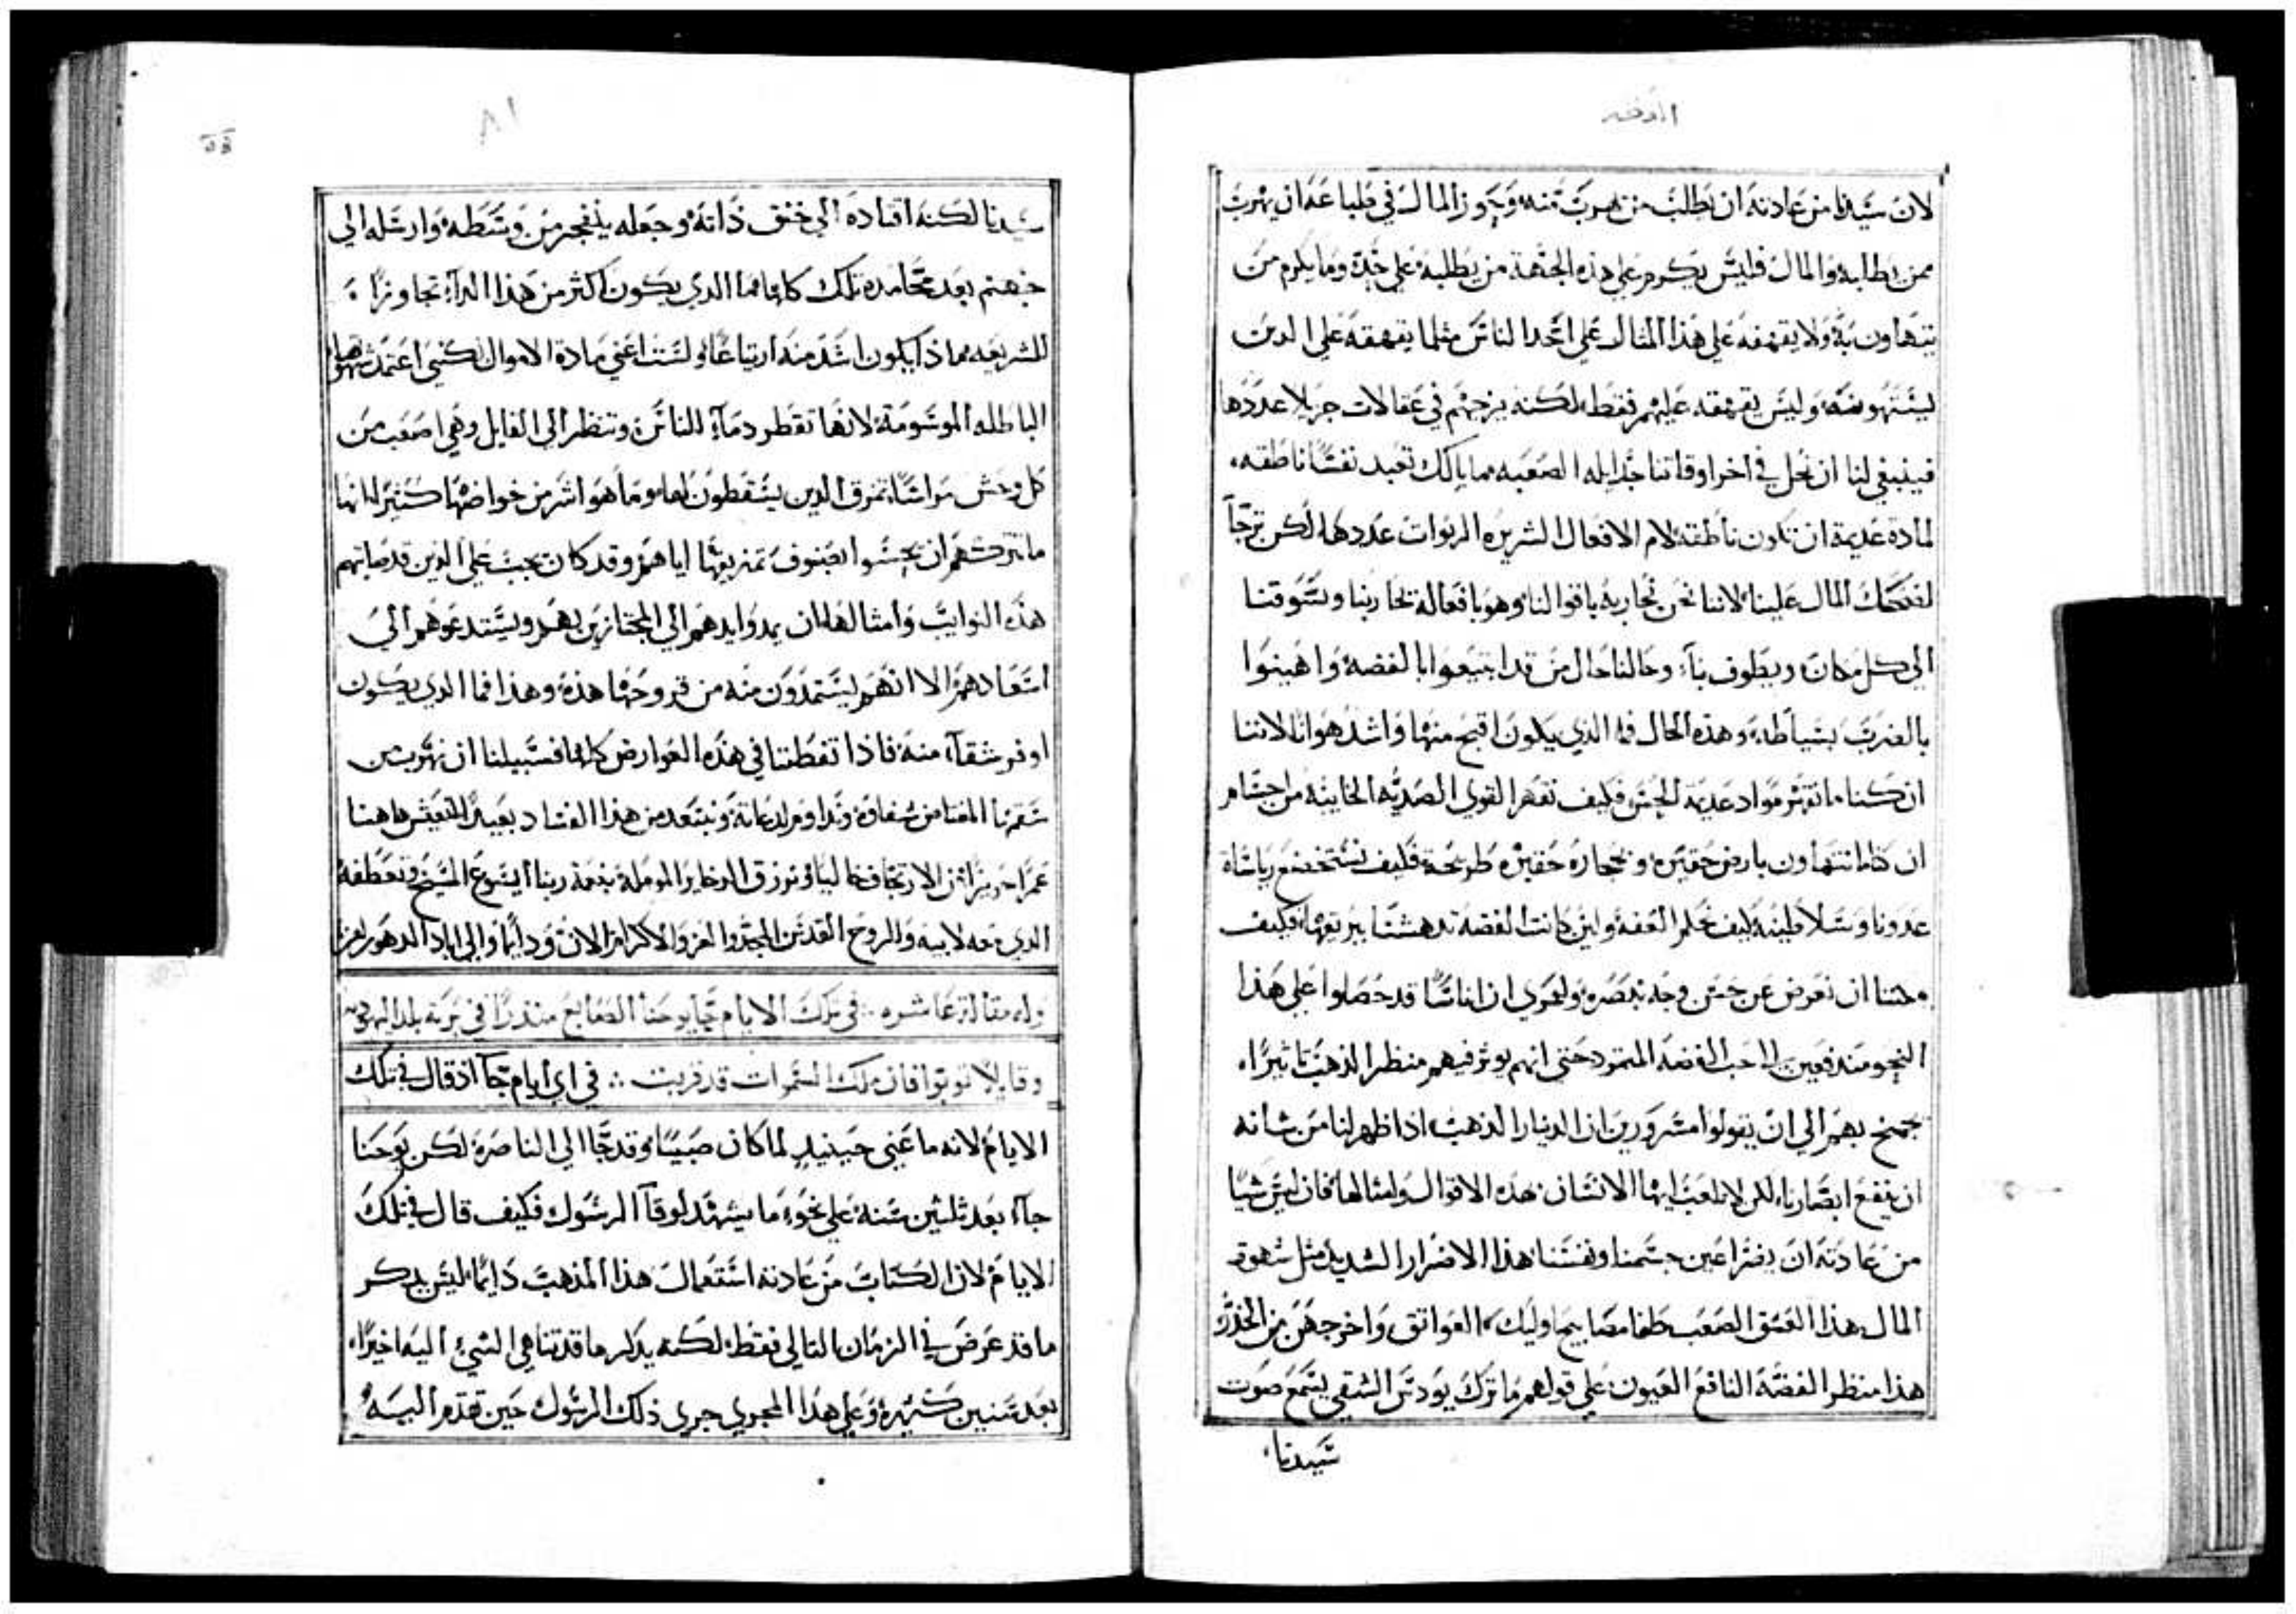 لان سيدنا من عادته ان يطلب من يهرب منه وبجوز المال في طباعه ان يهرب
ممن يطالبه والمال فليس يكرم على هذه الجهة من يطلبه على حدة وما يكرم من
يتهاون به ولا يقهقه على هذا المثال على احد الناس مثلما يقهقه على الدين
يشتهونه وليس يقهقه عليهم فقط لكنه يزجهم في عقالات جزيلا عددها
فينبغي لنا ان نحل في اخر اوقاتنا حبايله الصعبه ما بالك تعبد نفسا ناطقه
لمادة عديمة ان تكون ناطقة لام الافعال الشريره الربوات عددها لكن
لضحك المال علينا لاننا نحن نحاربه باقوالنا وهو بافعاله يحاربنا ويسوقنا
الى كل مكان ويطوف بنا وحالنا حال من قد ابتيعوا بالفضة واهينوا
بالضرب بسياطه وهذه الحال فما الذي يكون اقبح منها واشد هوانا لاننا
ان كنا ما نقهر مواد عديمة الحس فكيف نقهر القوى الصديه الخايبة من اجسام
ان كنا ما نتهاون بارض حقيره وحجاره حقيره طريحة فكيف نستخضع رياسات
عدونا وسلاطينه كيف نحكم العفة ولين كانت الفضة تدهشنا ببريقها فكيف
يمكننا ان نعرض عن حسن وجه نبصره ولعمري ان اناسا قد حصلوا على هذا
النحو مندفعين الى حب الفضة المتمرد حتى انهم يوثر فيهم منظر الذهب تاثيرا
يجمح بهم الى ان يقولوا مسرورين ان الدينار الذهب اذا ظهر لنا من شانه
ان ينفع ابصارنا لكن لا تلعب ايها الانسان هذه الاقوال وامثالها فان ليس شيا
من عادته ان يضر اعين جسمنا ونفسنا هذا الاضرار الشديد مثل شهوة
المال هذا العشق الصعب طفا مصابيح اوليك العواتق واخرجهن من الخدر
هذا منظر الفضة النافع العيون على قولهم ما ترك يودس الشقي يسمع صوت
سيدنا
٨١
سيدنا لكنه اقتاده الى خنق ذاته وجعله ينفجر من وسطه وارسله الى
جهنم بعد محامده تلك كلها فما الذي يكون اكثر من هذا الدآء تجاوزا
للشريعه مما ذا يكون اشد منه ارتياعا ولست اعني مادة الاموال لكنني اعتمد شهوتها
الباطله الموسومة لانها تقطر دمآء للناس وتنظر الى القايل وهي اصعب من
كل وحش مراسا تمزق الدين يسقطون لها وما هو اشر من خواصها كثيرا انها
ما تتركهم ان يحسوا بصنوف تمزيقها اياهم وقد كان يجب على الذين قد صابتهم
هذه النوايب وامثالها ان يمدوا يديهم الى المجتازين بهم ويستدعوهم الى
اسعادهم الا انهم يستمدون منه من قروحها هذه وهذا فما الذي يكون
اوفر شقآء منه فاذا تفطنا في هذه العوارض كلها فسبيلنا ان نهرب من
سقمنا المعتاص شفاوه ونداوم لدغاته ونبتعد من هذا الفساد بعيدا لنعيش هاهنا
عمرا حريزا من الارتجاف خاليا ونرزق الدخاير المومله بنعمة ربنا ايسوع المسيح وتعطفه
الذي معه لابيه والروح القدس المجد والعز والاكرام الان ودايما والى اباد الدهور امين
وله مقالة عاشره في تلك الايام جا يوحنا الصابغ منذرا في برية بلد اليهودية
وقايلا توبوا فان ملك السموات قد قربت في اي ايام جآ اذ قال في تلك
الايام لانه ما عنى حينيد لما كان صبيا وقد جا الى الناصرة لكن يوحنا
جآء بعد ثلثين سنة على نحو ما يشهد لوقآ الرسول فكيف قال في تلك
الايام لان الكتاب من عادته استعمال هذا المذهب دايما ليس يدكر
ما قد عرض في الزمان التالي فقط لكنه يدكر ما قد تناهى الشي اليه اخيرا
بعد سنين كثيره وعلى هذا المجرى جرى ذلك الرسول حين تقدم اليه